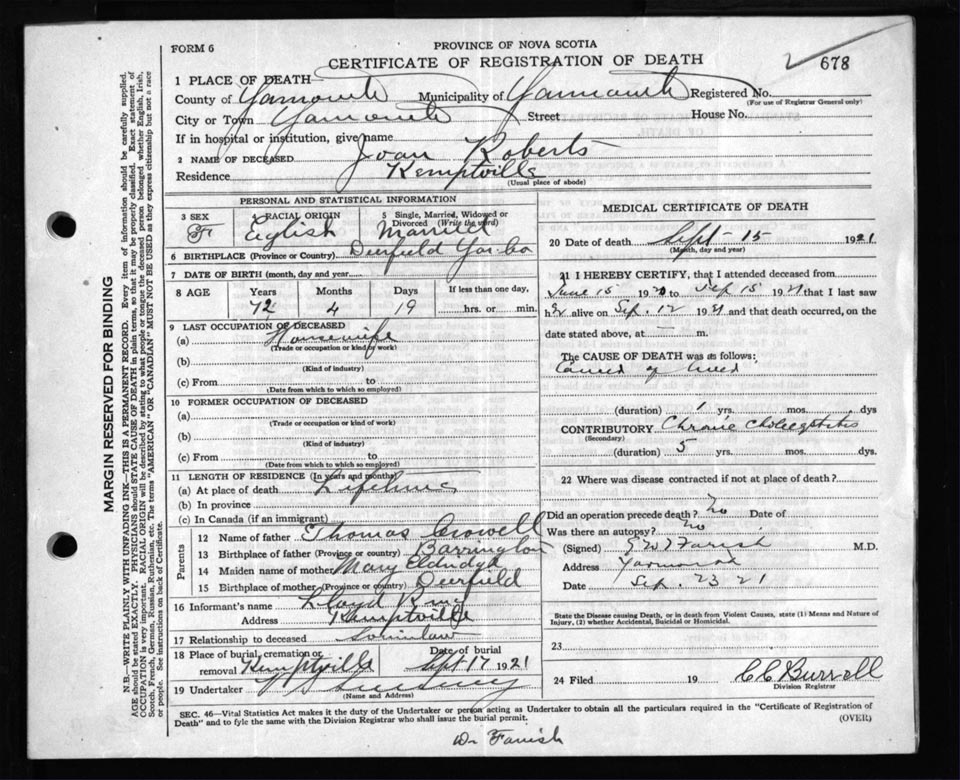 FORM 6
PROVINCE OF NOVA SCOTIA
CERTIFICATE OF REGISTRATION OF DEATH
678
1 PLACE OF DEATH
County of Yarmouth Municipality of Yarmouth Registered No.
(For use of Registrar General only)
City or Town Yarmouth Street House No.
If in hospital or institution, give name
2 NAME OF DECEASED Joan Roberts
Residence Kemptville
(Usual place of abode)
PERSONAL AND STATISTICAL INFORMATION
3 SEX F
4 RACIAL ORIGIN English
5 Single, Married, Widowed or Divorced (Write the word) Married
6 BIRTHPLACE (Province or Country) Deerfield Yar. Co
7 DATE OF BIRTH (month, day and year)
8 AGE Years 72 Months 4 Days 19 If less than one day, hrs. or min.
9 LAST OCCUPATION OF DECEASED
(a) Housewife
(Trade or occupation or kind of work)
(b)
(Kind of industry)
(c) From to
(Date from which to which so employed)
10 FORMER OCCUPATION OF DECEASED
(a)
(Trade or occupation or kind of work)
(b)
(Kind of industry)
(c) From to
(Date from which to which so employed)
11 LENGTH OF RESIDENCE (In years and months)
(a) At place of death Lifetime
(b) In province
(c) In Canada (if an immigrant)
Parents
12 Name of father Thomas Crowell
13 Birthplace of father (Province or country) Barrington
14 Maiden name of mother Mary Eldridge
15 Birthplace of mother (Province or country) Deerfield
16 Informant's name Lloyd
Address Kemptville
17 Relationship to deceased Soninlaw
18 Place of burial, cremation or removal Kemptville Date of burial Sept 17 1921
19 Undertaker
(Name and Address)
MEDICAL CERTIFICATE OF DEATH
20 Date of death Sept - 15 1921
(Month, day and year)
21 I HEREBY CERTIFY, that I attended deceased from
June 15 19 to Sep 15 1921 that I last saw
her alive on Sep. 12 1921 and that death occurred, on the
date stated above, at — m.
The CAUSE OF DEATH was as follows:
of
(duration) 1 yrs. mos. dys
CONTRIBUTORY Chronic
(Secondary)
(duration) 5 yrs. mos. dys.
22 Where was disease contracted if not at place of death?
Did an operation precede death? No Date of
Was there an autopsy? No
(Signed) Farish M.D.
Address Yarmouth
Date Sep. 23 21
State the Disease causing Death, or in death from Violent Causes, state (1) Means and Nature of
Injury, (2) whether Accidental, Suicidal or Homicidal.
23
24 Filed 19 CC Burrell
Division Registrar
SEC. 46—Vital Statistics Act makes it the duty of the Undertaker or person acting as Undertaker to obtain all the particulars required in the "Certificate of Registration of
Death" and to fyle the same with the Division Registrar who shall issue the burial permit.
(OVER)
Dr Farish
MARGIN RESERVED FOR BINDING
N.B.—WRITE PLAINLY WITH UNFADING INK—THIS IS A PERMANENT RECORD. Every item of information should be carefully supplied.
AGE should be stated EXACTLY. PHYSICIANS should STATE CAUSE OF DEATH in plain terms, so that it may be properly classified. Exact statement of
OCCUPATION is very important. RACIAL ORIGIN will be described by stating to what people or tongue the deceased person belonged whether English, Irish,
Scotch, French, German, Russian, Ruthenian, etc. The terms "AMERICAN" or "CANADIAN" MUST NOT BE USED as they express citizenship but not a race
or people. See instructions on back of Certificate.